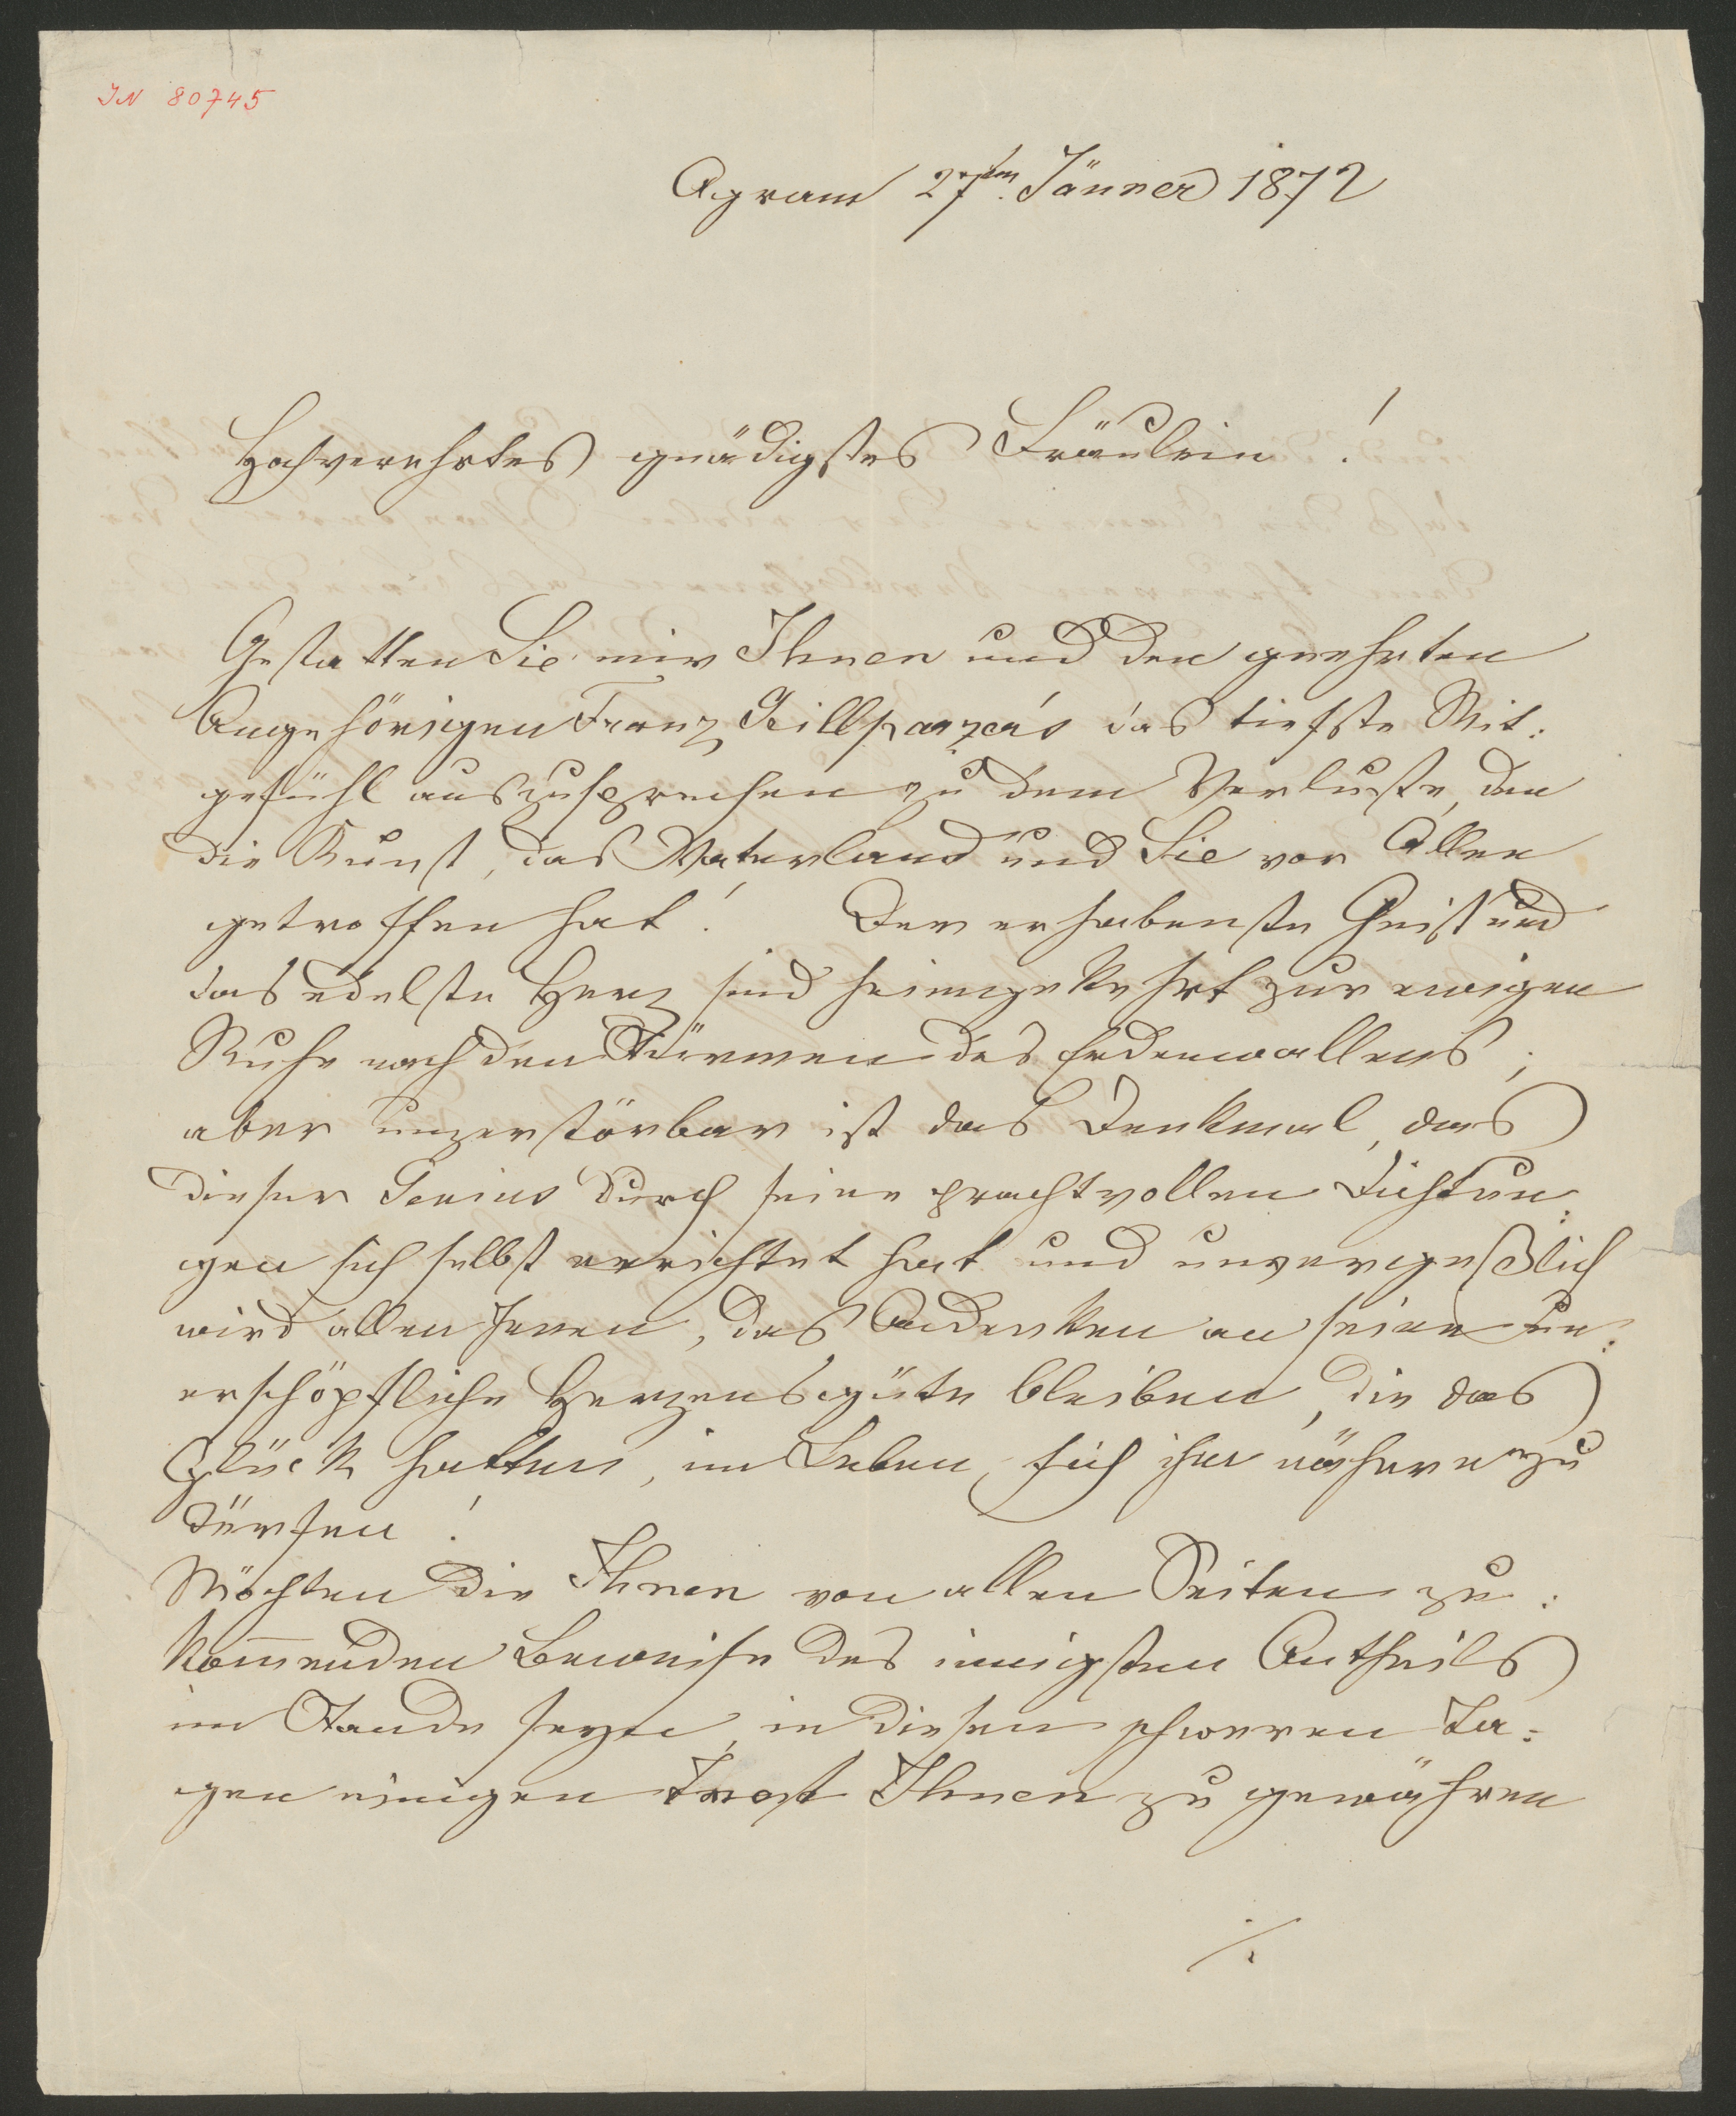 IN 80745
Agram 27sten. Jänner 1872
Hochverehrtes gnädigstes Fräulein!
Gestatten Sie mir Ihnen und den geehrten
Angehörigen Franz Grillparzer's das tiefste Mit:
gefühl auszusprechen zu dem Verluste, den
die Kunst, das Vaterland und Sie vor Allen
getroffen hat! Der erhabenste Geist und
das edelste Herz sind heimgekehrt zur ewigen
Ruhe nach den Stürmen des Erdenwallens;
aber unzerstörbar ist das Denkmal, das
dieser Genius durch seine prachtvollen Dichtun:
gen sich selbst errichtet hat und unvergeßlich
wird allen Jenen, das Andenken an seine un:
erschöpfliche Herzensgüte bleiben, die das
Glück hatten, im Leben, sich ihm nähern zu
dürfen!
Möchten die Ihnen von allen Seiten zu:
kom̅enden Beweise des innigsten Antheils
im Stande seyn, in diesen schweren Ta:
gen einigen Trost Ihnen zu gewähren
./.